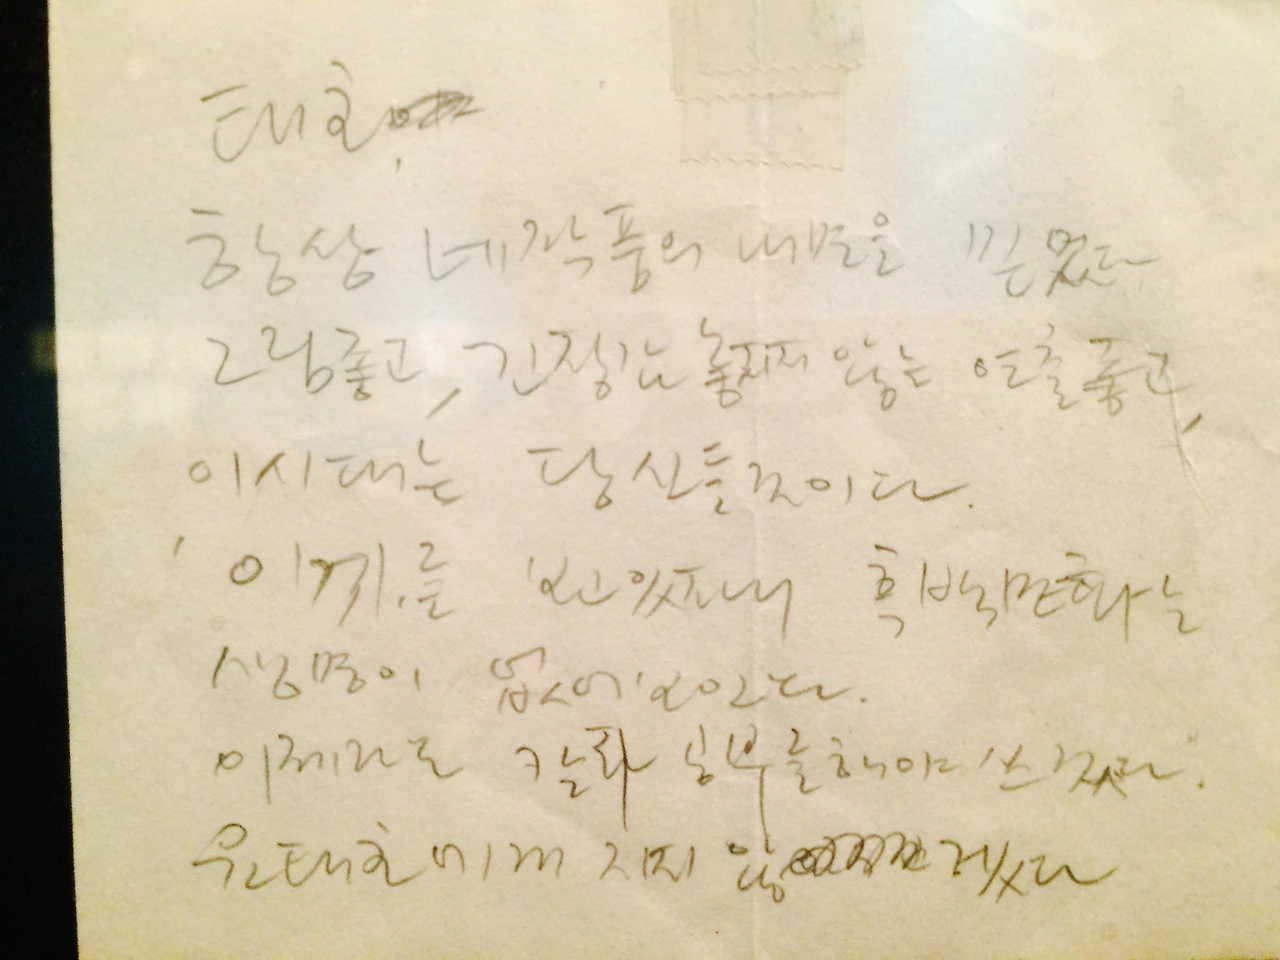 태호,
항상 네 작품의 내면을 믿었다
그림좋고, 긴장감 놓치지 않는 연출좋고,
이시대는 당신들것이다.
'이끼'를 보고있자니 흑백만화는
생명이 없어보인다.
이제라도 칼라 공부를 해야 쓰겄다.
윤태호에게 지지 않 겠다